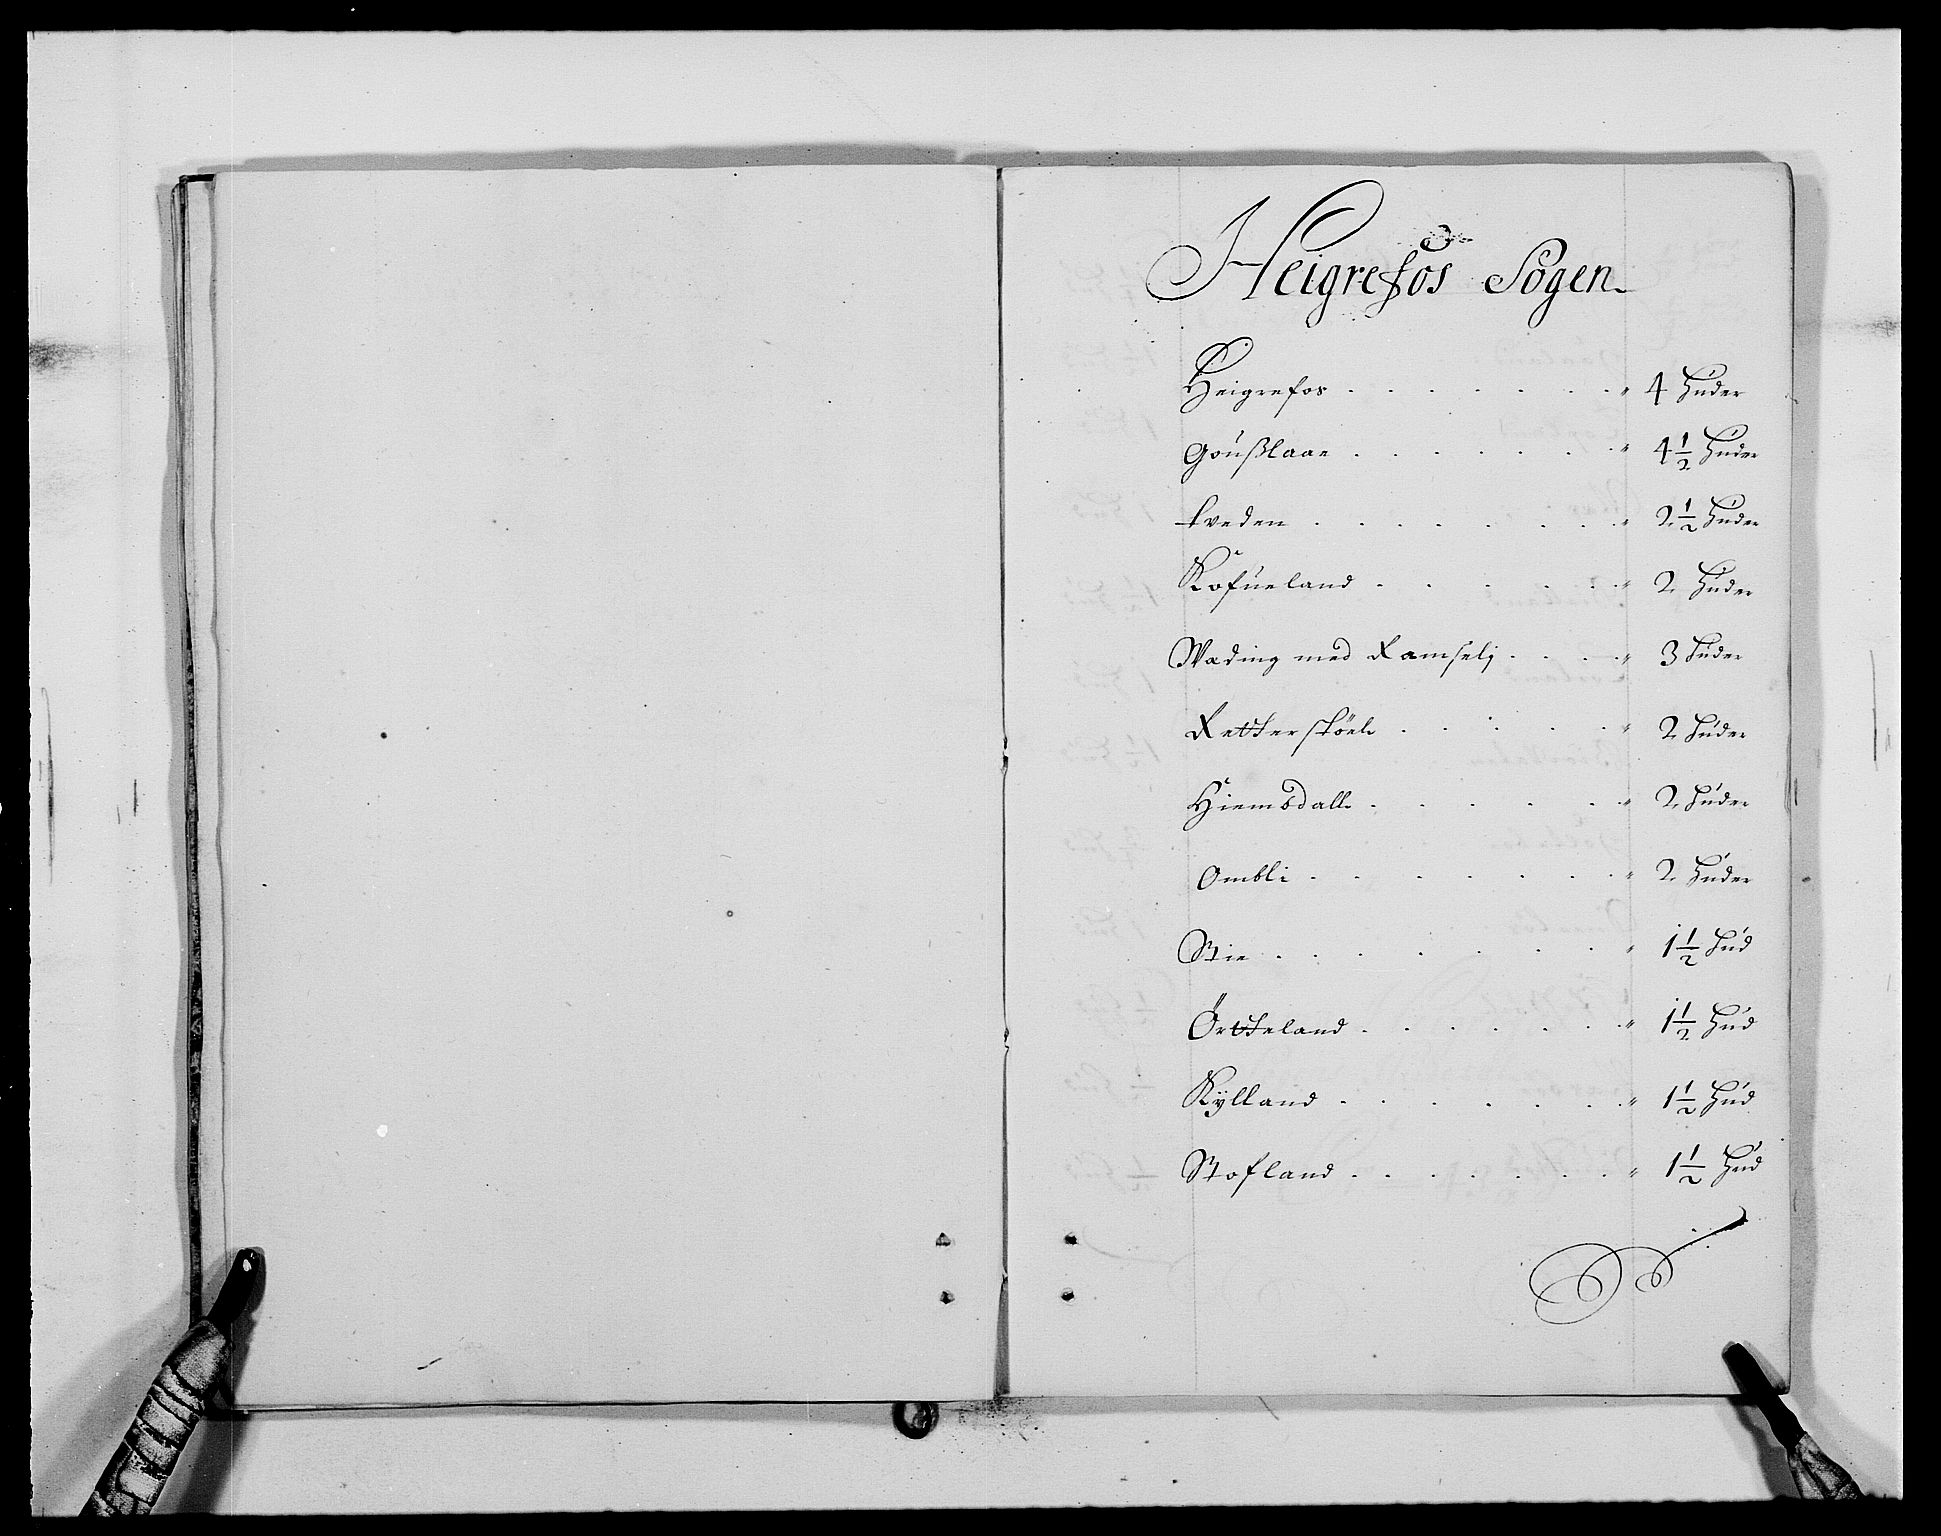 Heigrefos Sogen.
Heigrefos . . . . . . . " 4 Huder
Goußlaae . . . . . . . " 4 1/2 Huder
Tveden . . . . . . . . " 2 1/2 Huder
Kofueland . . . . . . " 2 Huder
Wading med Ramselj . . . . " 3 Huder
Retterspöel . . . . . . " 2 Huder
Hiemsdall . . . . . . " 2 Huder
Ombli . . . . . . . . " 2 Huder
Stie . . . . . . . . " 1 1/2 Hud
Ortteland . . . . . . . " 1 1/2 Hud
Kÿlland . . . . . . . " 1 1/2 Hud
Stofland . . . . . . . " 1 1/2 Hud